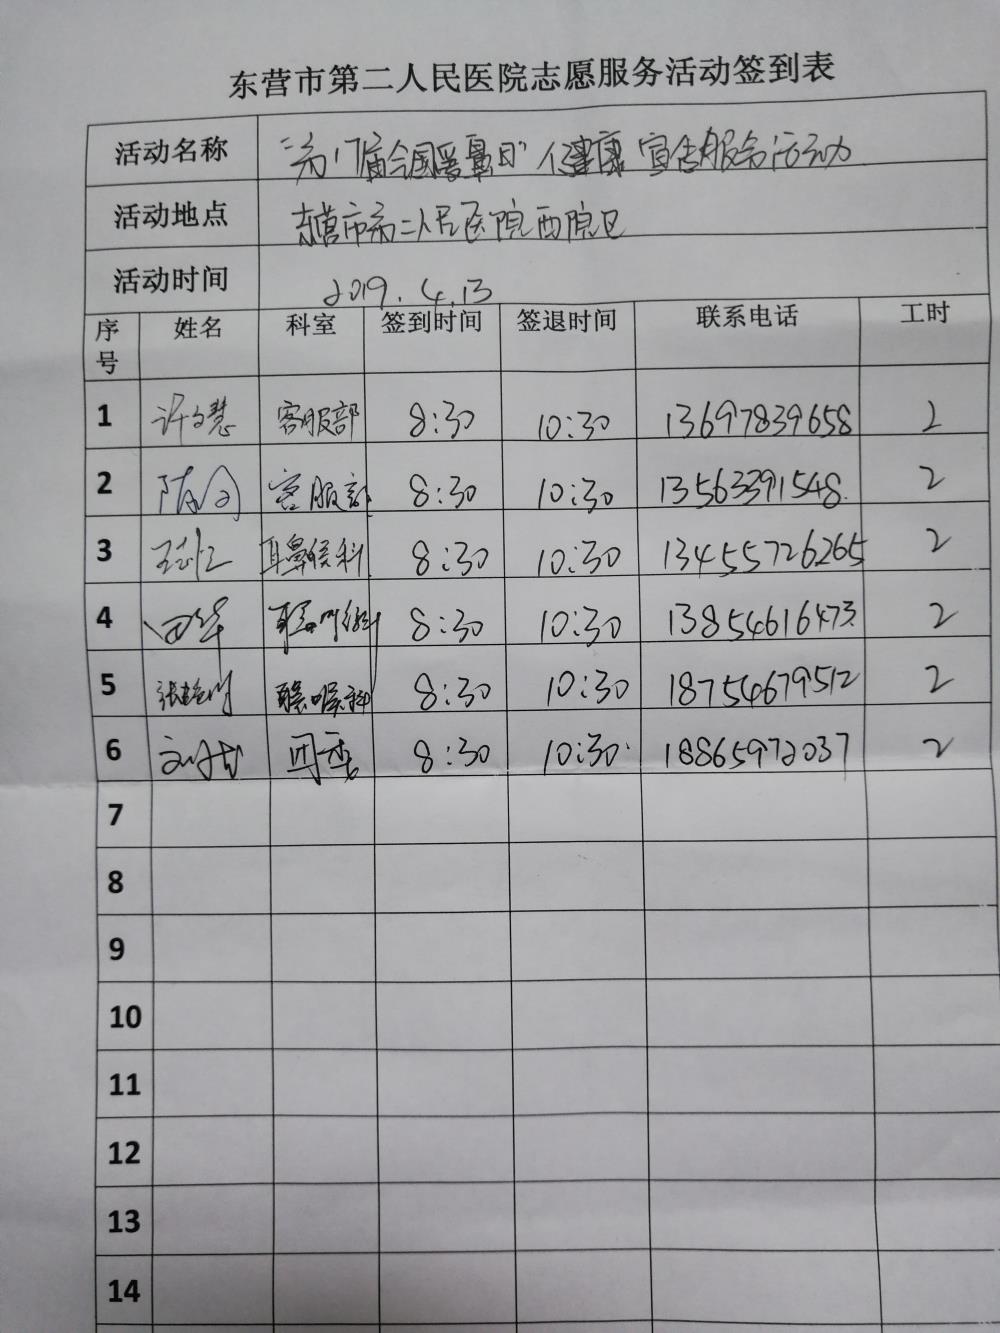 东营市第二人民医院志愿服务活动签到表
活动名称 全国爱鼻日"健康宣传服务活动
活动地点 东营市第二人民医院西院区
活动时间 2019.4.13
序号 姓名 科室 签到时间 签退时间 联系电话 工时
1 许文慧 客服部 8:30 10:30 13697839658 2
2 客服部 8:30 10:30 13563391548 2
3 耳鼻喉科 8:30 10:30 13455726265 2
4 8:30 10:30 13854616473 2
5 8:30 10:30 18754679512 2
6 8:30 10:30 18865972037 2
7
8
9
10
11
12
13
14